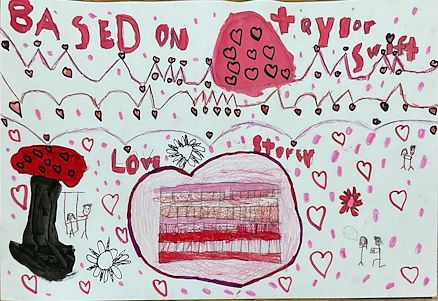 BASED ON taylor
Swift
Love Storey